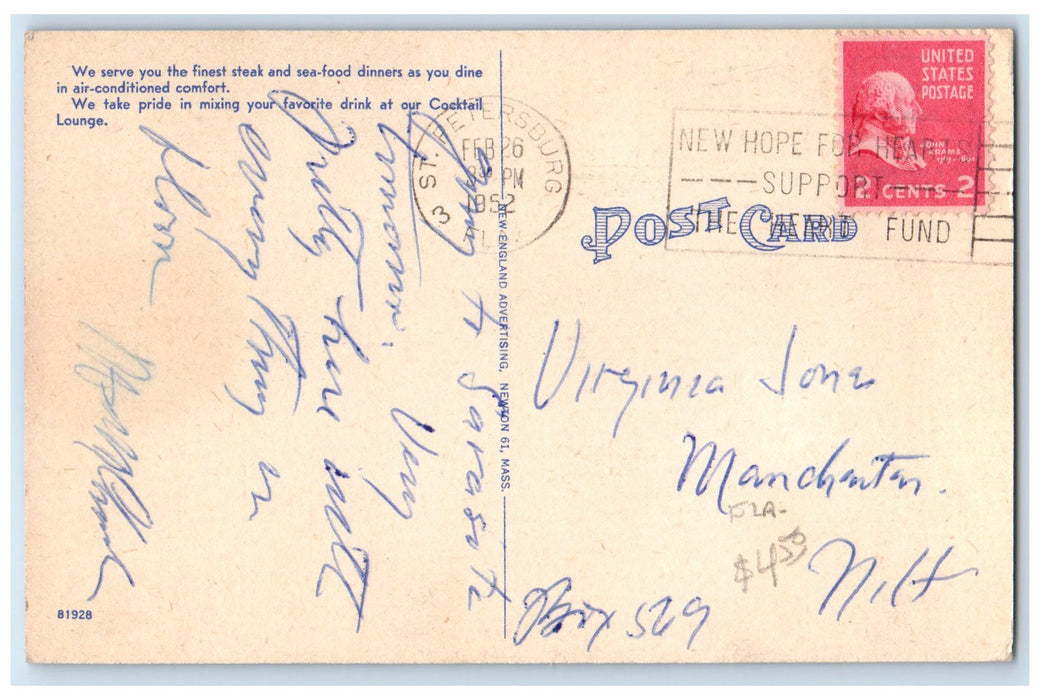 We serve you the finest steak and sea-food dinners as you dine
in air-conditioned comfort.
We take pride in mixing your favorite drink at our Cocktail
Lounge.
going to Sarasota
tomorrow. Very
Pretty here with
every thing in
bloom
81928
NEW ENGLAND ADVERTISING, NEWTON 61, MASS.
ST. PETERSBURG
3
FEB 26
PM
1952
FLA
NEW HOPE FOR HEARTS
SUPPORT
THE HEART FUND
UNITED
STATES
POSTAGE
JOHN
ADAMS
2 CENTS 2
POST CARD
Virginia Jones
Manchester.
FLA-
$4.50
N.H
Box 569